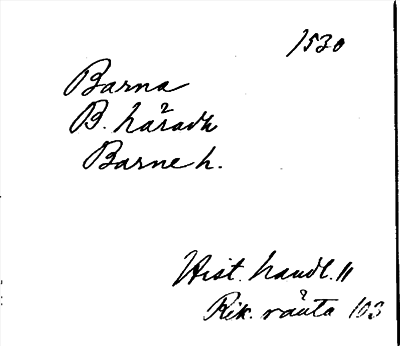 1530
Barna
B. håradh
Barne h.
Hist. handl. 11
Rik.ränta 103